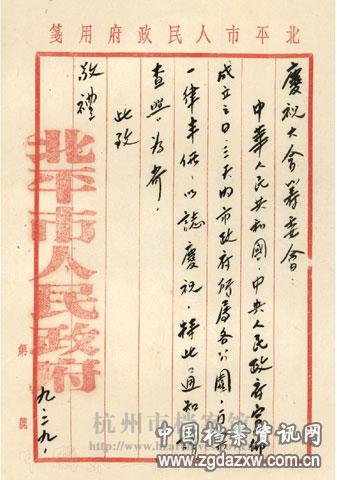 北平市人民政府用箋
慶祝大會籌委會：
中華人民共和國·中央人民政府宣佈
成立之日·三天的市政府所屬各公園·
一律半價·以誌慶祝·特此通知·
查照為荷·
此致
敬禮
北平市人民政府
第 號
九.二九.
杭州市档案馆
中国档案资讯网
www.zgdazxw.com.cn